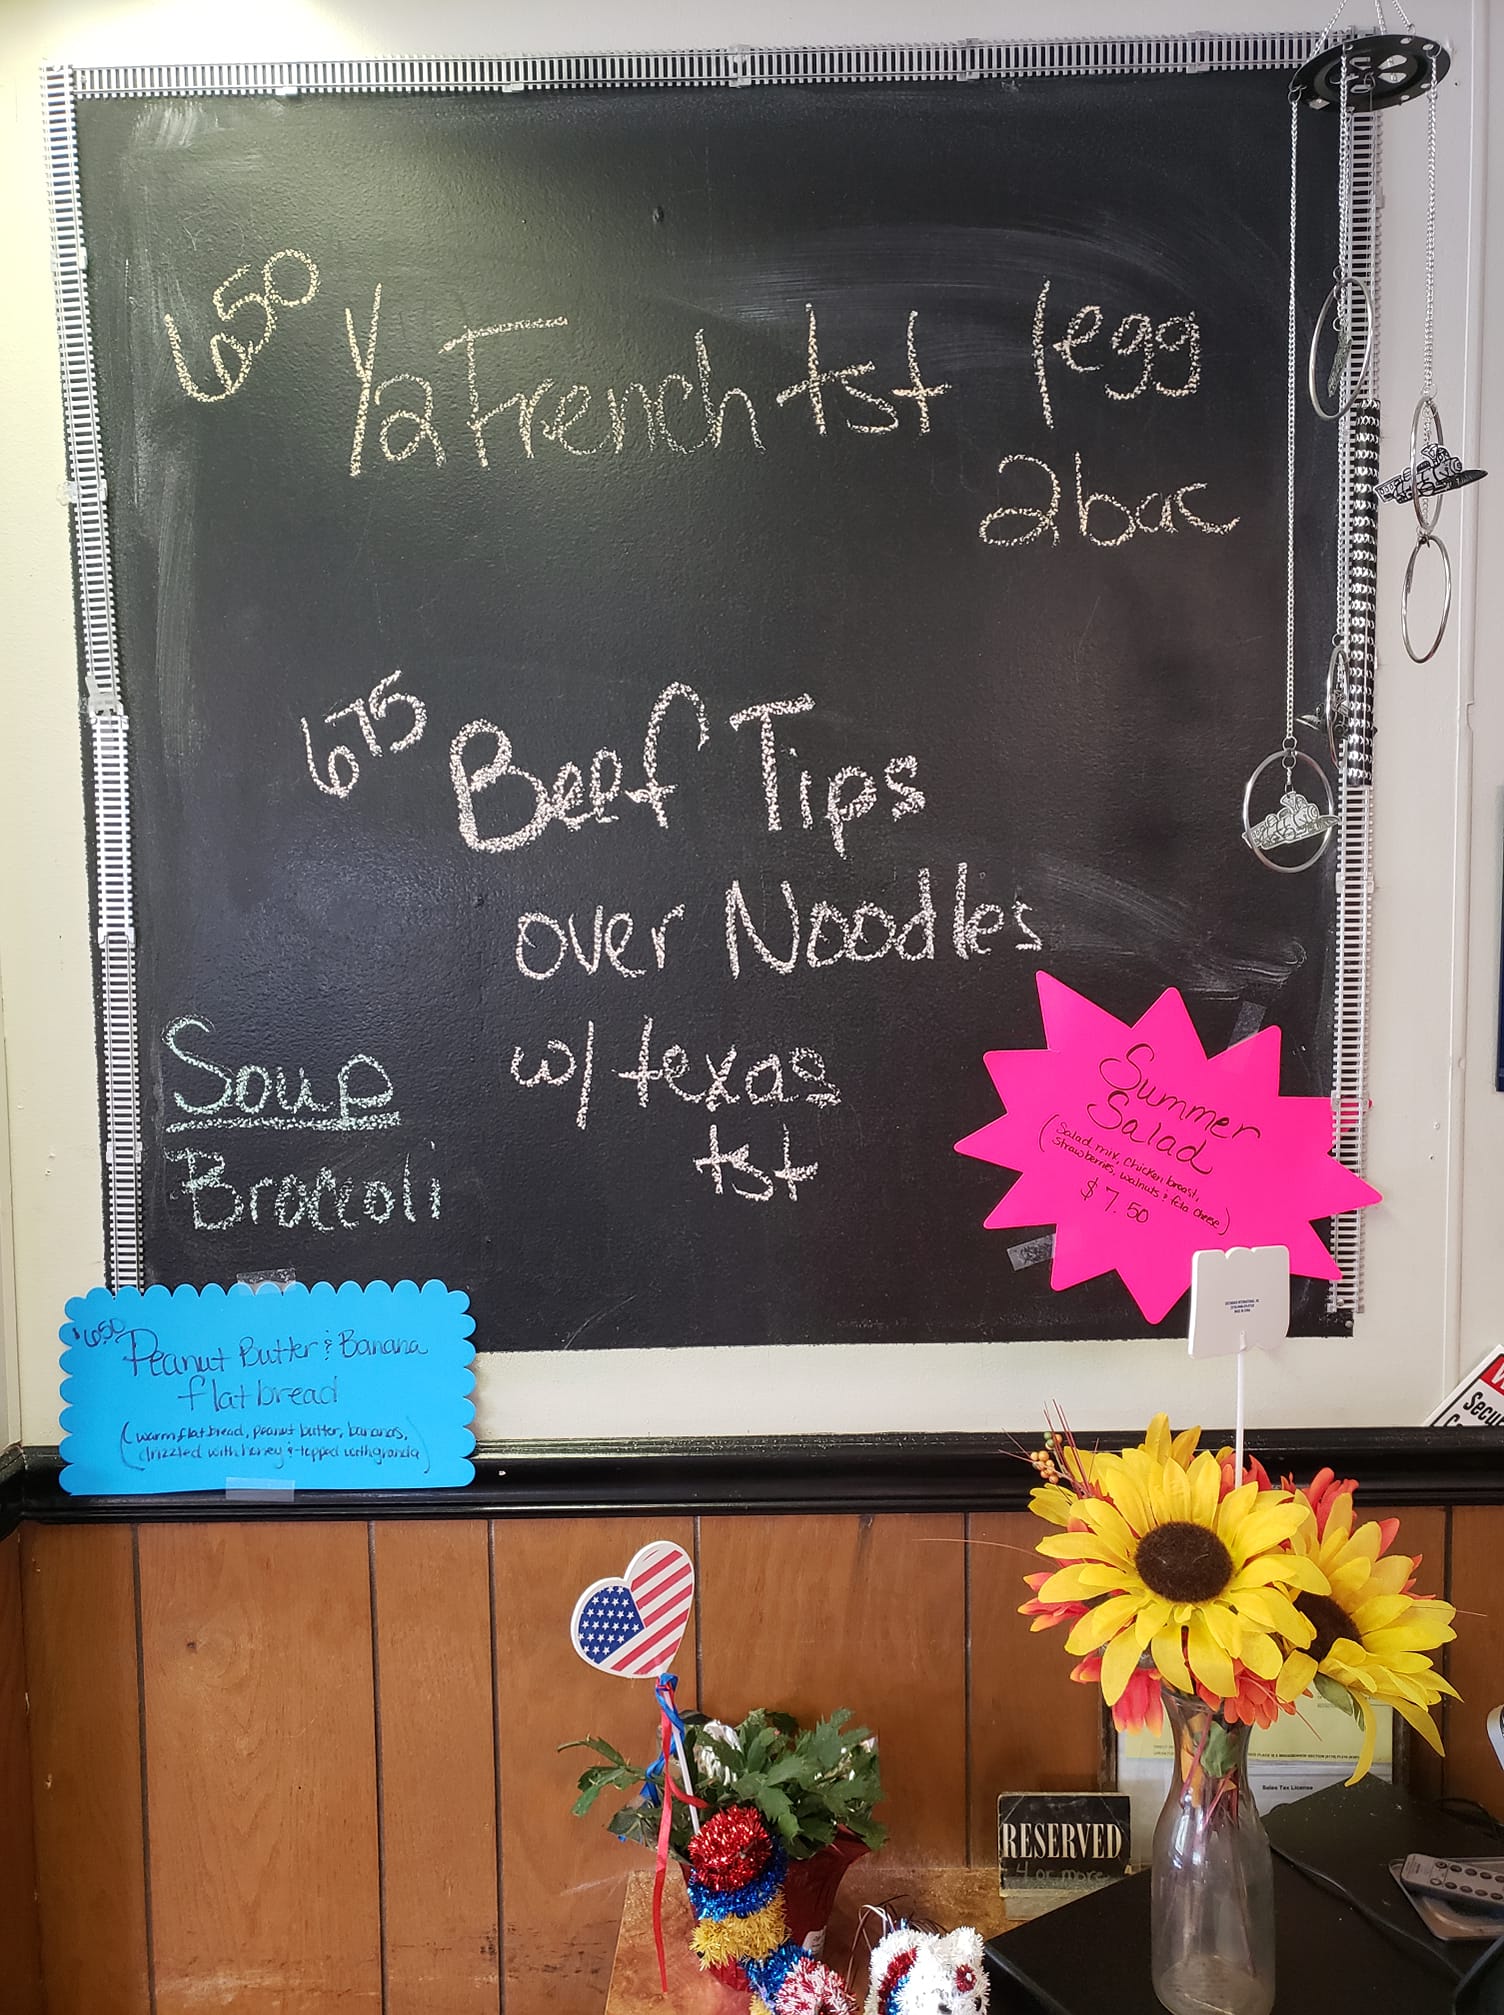 650 1/2 French tst 1 egg
2 bac
675 Beef Tips
over Noodles
w/ texas
tst
Soup
Broccoli
Summer
Salad
(Salad mix, chicken breast,
strawberries, walnuts & feta cheese)
$7.50
$6.50
Peanut Butter & Banana
flatbread
(warm flatbread, peanut butter, bananas,
drizzled with honey & topped with granola)
Secu
RESERVED
4 or more
Sales Tax License